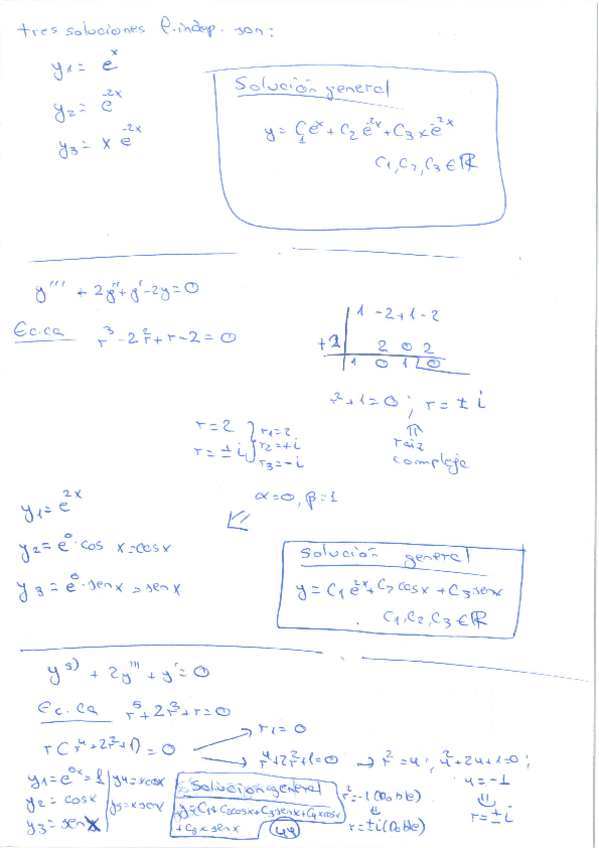 tres soluciones l.indep. son:
y₁ = eˣ
y₂ = e⁻²ˣ
y₃ = x e⁻²ˣ
Solución general
y = C₁eˣ + C₂e⁻²ˣ + C₃xe⁻²ˣ
C₁, C₂, C₃ ∈ ℝ
y''' + 2y'' + y' - 2y = 0
Ec.ca r³ - 2r² + r - 2 = 0
1 -2 +1 -2
+2 2 0 2
1 0 1 0
r² + 1 = 0 ; r = ± i
raiz
compleja
r = 2
r = ± i
r₁ = 2
r₂ = +i
r₃ = -i
α = 0, β = 1
y₁ = e²ˣ
y₂ = e⁰ · cos x = cosx
y₃ = e⁰ · senx = senx
Solución general
y = C₁e²ˣ + C₂cosx + C₃senx
C₁, C₂, C₃ ∈ ℝ
y⁵⁾ + 2y''' + y' = 0
Ec.ca r⁵ + 2r³ + r = 0
r(r⁴ + 2r² + 1) = 0 → r₁ = 0
→ r⁴ + 2r² + 1 = 0 → r² = u ; u² + 2u + 1 = 0 ;
u = -1
⇓
r = ± i
r² = -1 (Doble)
↓
r = ± i (Doble)
y₁ = e⁰ˣ = 1
y₂ = cosx
y₃ = senx
y₄ = xcosx
y₅ = xsenx
Solución general
y = C₁ + C₂cosx + C₃senx + C₄xcosx
+ C₅xsenx
44